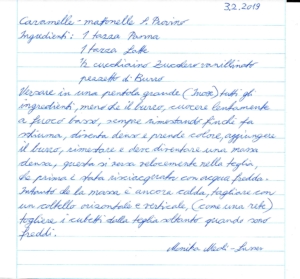 3.2.2019
Caramelle - mattonelle P. Pavino
Ingredienti: 1 tazza Panna
1 tazza Latte
½ cucchiaino Zucchero vanillinato
pezzetto di Burro
Versare in una pentola grande (Inox) tutti gli
ingredienti, meno che il burro, cuocere lentamente
a fuoco basso, sempre rimestando finché fa
schiuma, diventa denso e prende colore, aggiungere
il burro, rimestare e deve diventare una massa
densa, questa si versa velocemente nella teglia,
che prima è stata risciacquata con acqua fredda.
Intanto che la massa è ancora calda, tagliare con
un coltello orizontale e verticale, (come una rete)
togliere i cubetti dalla teglia soltanto quando sono
freddi.
Monika Medi -